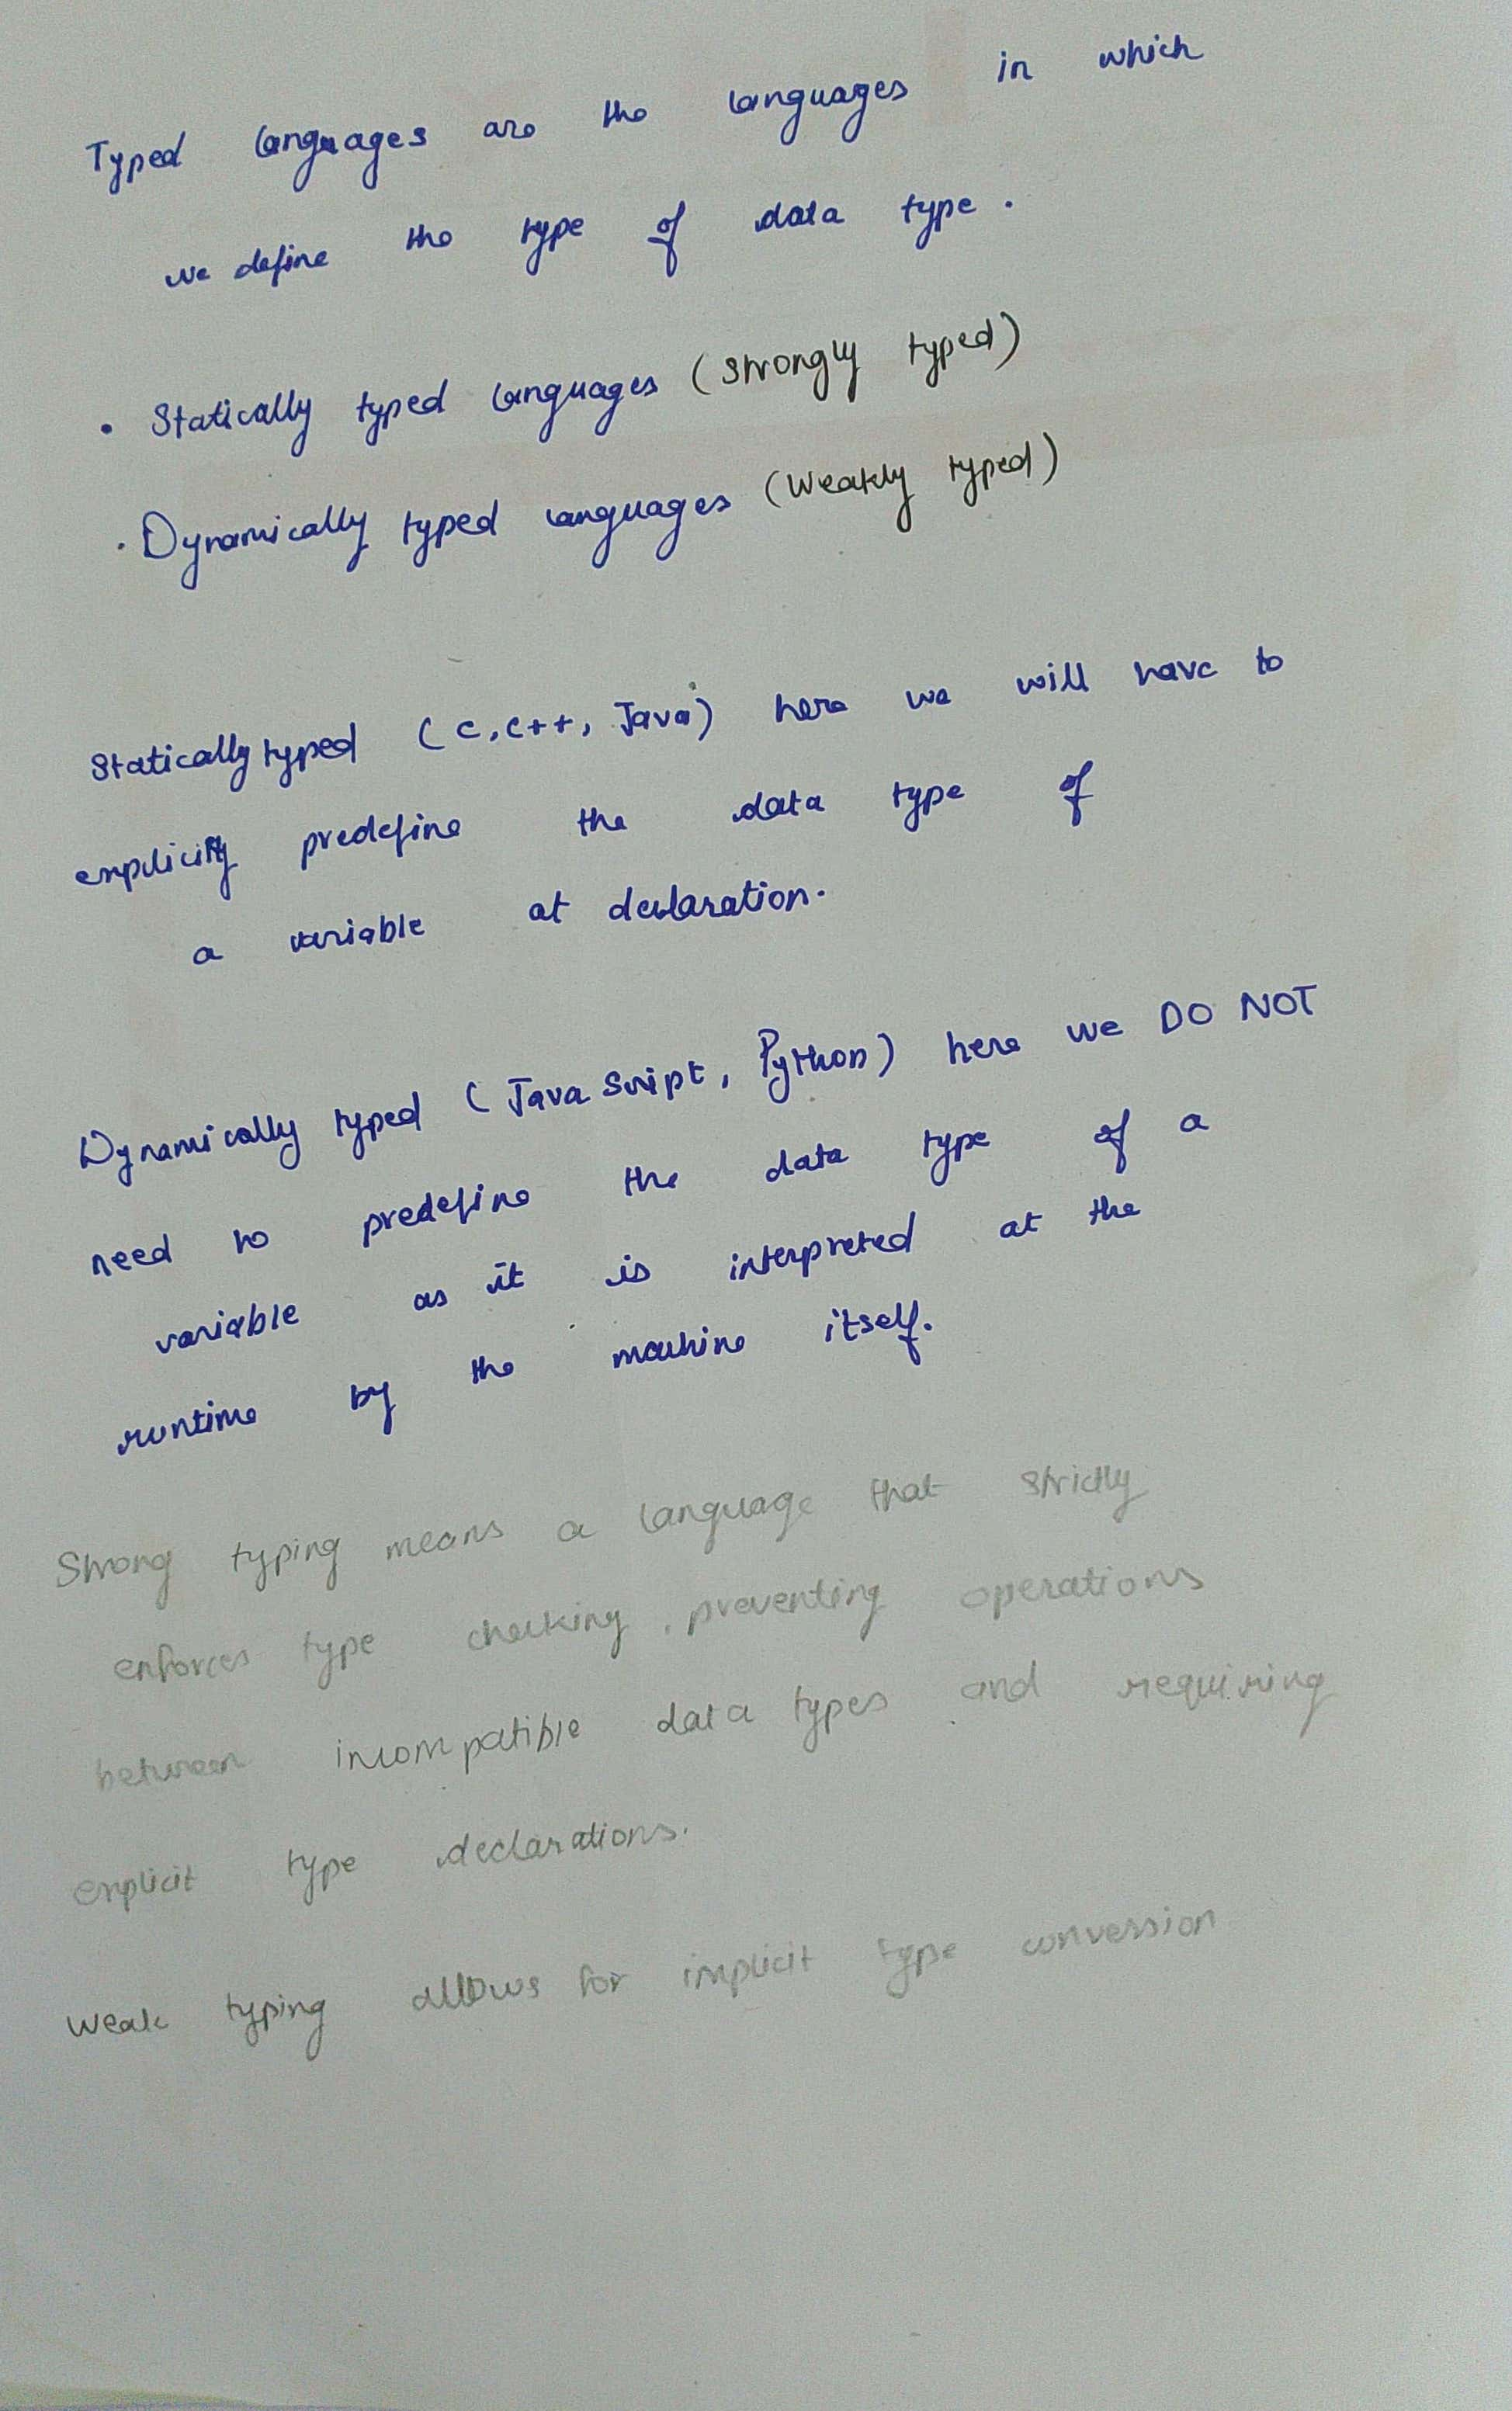 Typed languages are the languages in which
we define the type of data type.
• Statically typed languages (strongly typed)
• Dynamically typed languages (Weakly typed)
Statically typed (C, C++, Java) here we will have to
explicitly predefine the data type of
a variable at declaration.
Dynamically typed (JavaScript, Python) here we DO NOT
need to predefine the data type of a
variable as it is interpreted at the
runtime by the machine itself.
Strong typing means a language that strictly
enforces type checking, preventing operations
between incompatible data types and requiring
explicit type declarations.
Weak typing allows for implicit type conversion